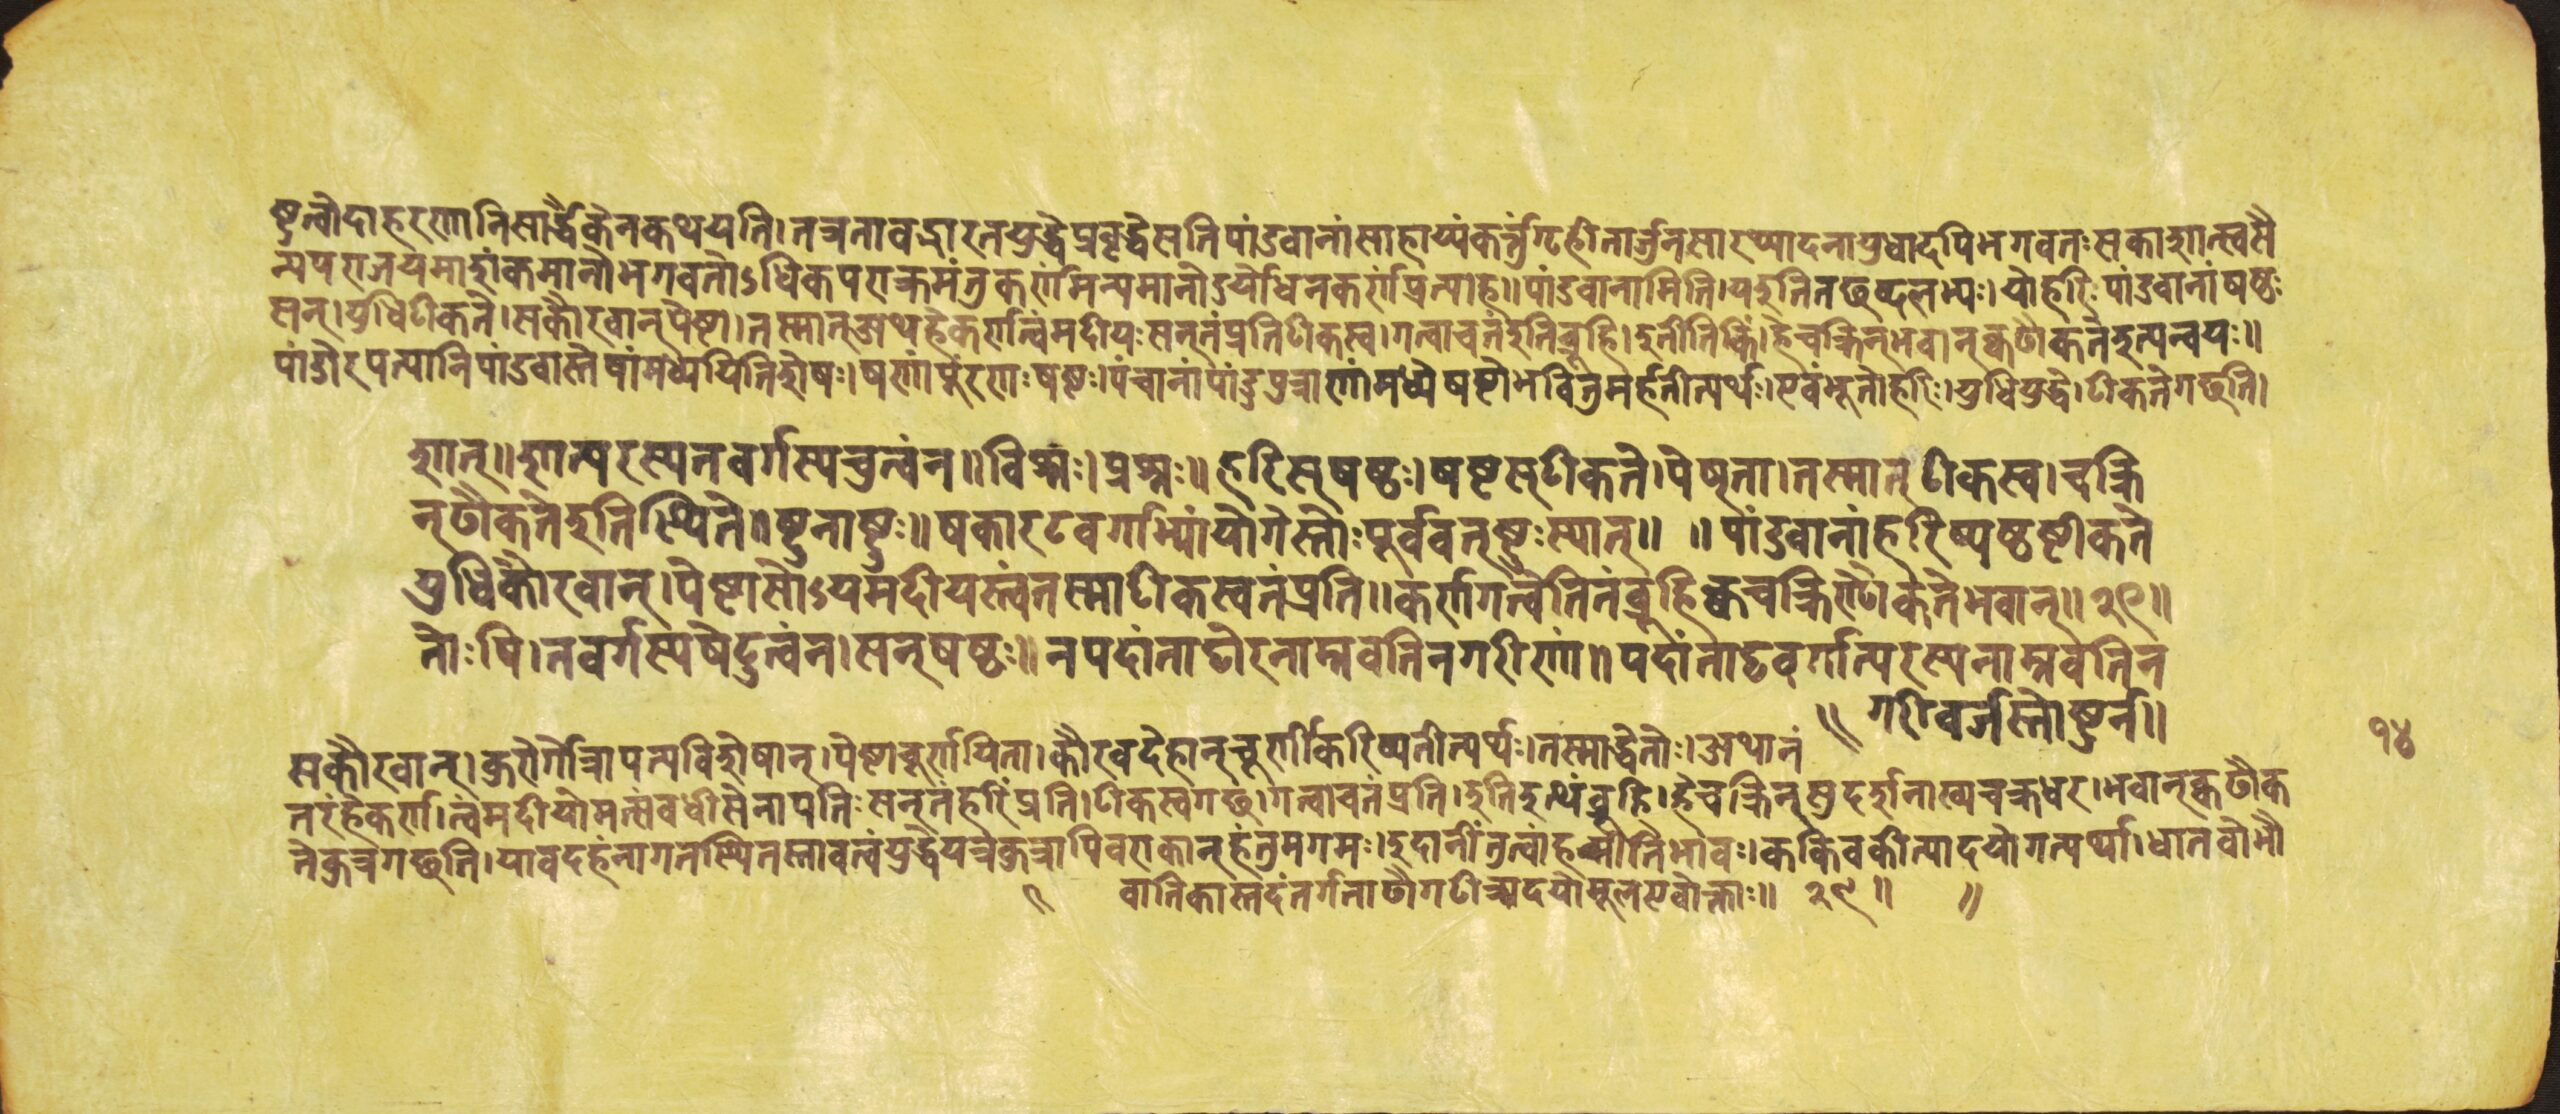 ष्टुत्वोदाहरणानि सार्द्धैकेन कथयति । तत्र तावद्भारतयुद्धे प्रवृद्धे सति पांडवानां साहाय्यं कर्त्तुं गृहीतार्जुनसारथ्यादनायुधादपि भगवतः सकाशात्स्वसै
न्यपराजयमाशंकमानो भगवतोऽधिकपराक्रमं तु कर्णं मन्यमानो दुर्योधन कर्णं प्रत्याह ॥ पांडवानामिति । यदुतितछब्दलभ्यः । यो हरिः पांडवानां षष्ठः
सन् । युधि टीकते । स कौरवान् पेष्टा । तस्मात् अथ हे कर्ण त्वं मदीयः सन् तं प्रति टीकस्व । गत्वा च तं इति ब्रूहि । इतीति किं । हे चक्रिन् भवान् क्व ढौकते इत्यन्वयः ॥
पांडोरपत्यानि पांडवास्तेषां मध्ये यिति शेषः । षण्णां पूरणः षष्टः । पंचानां पांडुपुत्राणां मध्ये षष्टो भवितुमर्हतीत्यर्थः । एवंभूतो हरिः । युधि युद्धे । टीकते गछति ।
शात् ॥ शात्परस्य तवर्गस्य चुत्वं न ॥ विश्नः । प्रश्नः ॥ हरिस् षष्ठः । षष्टस् टीकते । पेष् ता । तस्मात् टीकस्व । चक्रि
न् ढौकते इति स्थिते ॥ ष्टुना ष्टुः ॥ षकारटवर्गाभ्यां योगे स्तोः पूर्ववत् ष्टुः स्यात् ॥ ॥ पांडवानां हरिष्षष्ठष्टीकते
युधि कौरवान् । पेष्टा सोऽयमदीयस्त्वं तस्माट्टीकस्व तं प्रति ॥ कर्ण गत्वेति तं ब्रूहि क्व चक्रिण्ढौकते भवान् ॥ २९ ॥
तोः षि । तवर्गस्य षे ष्टुत्वं न । सन् षष्ठः ॥ न पदांताट्टोरनाम्नवतिनगरीणां ॥ पदांताट्टवर्गात्परस्य नाम्नवतिन
गरीवर्जस्तोः ष्टुर्न ॥
१४
स कौरवान् । कुरोर्गोत्रापत्यविशेषान् । पेष्टा चूर्णयिता । कौरवदेहान् चूर्णीकरिष्यतीत्यर्थः । तस्माद्धेतोः । अथानं
तरं हे कर्ण । त्वं मदीयो मत्संबंधी सेनापतिः सन् तं हरिं प्रति । टीकस्व गछ । गत्वा च तं प्रति । इति इत्थं ब्रूहि । हे चक्रिन् सुदर्शनाख्यचक्रधर । भवान् क्व ढौक
ते कुत्र गछति । यावदहं नागतस्थितस्तावत्त्वं युद्धे यत्र कुत्रापि वराकान् हंतुमगमः । इदानीं तु त्वां हन्मीति भावः । ककि वकीत्यादयो गत्यर्था । धातवो भौ
वातिकास्तदंतर्गता ढौग टीक्र्यादयो मूल एवोक्ताः ॥ २९ ॥